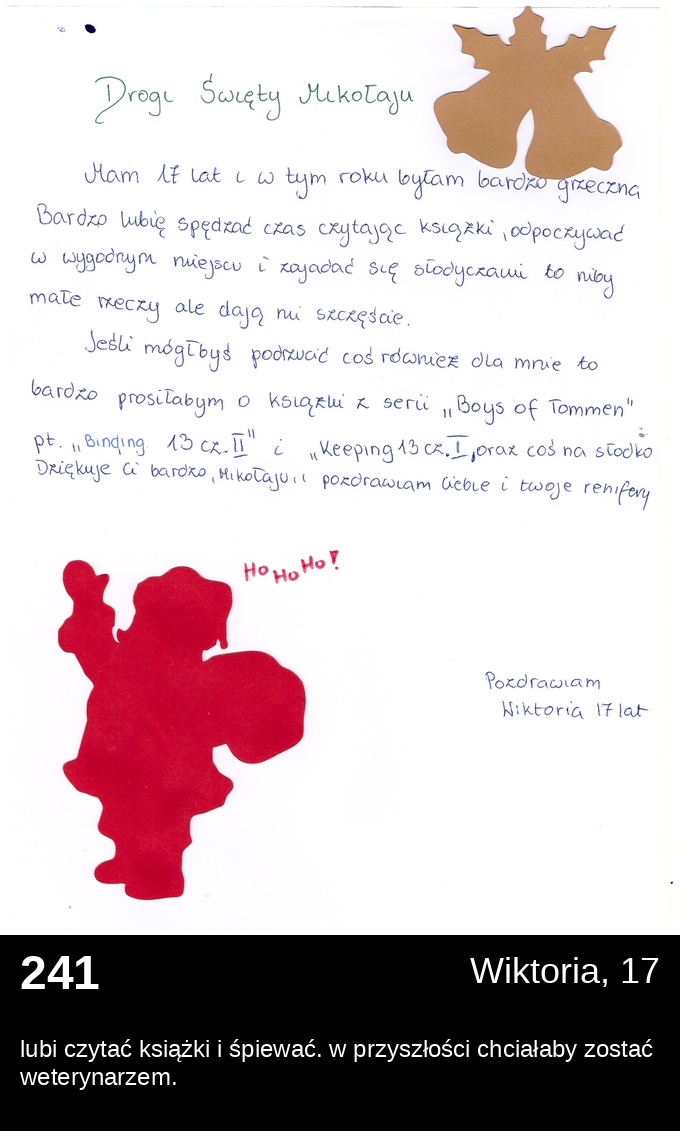 Drogi Święty Mikołaju
Mam 17 lat i w tym roku byłam bardzo grzeczna
Bardzo lubię spędzać czas czytając książki, odpoczywać
w wygodnym miejscu i zajadać się słodyczami to niby
małe rzeczy ale dają mi szczęście.
Jeśli mógłbyś podrzucić coś również dla mnie to
bardzo prosiłabym o książki z serii „Boys of Tommen"
pt. „Binding 13 cz. II" i „Keeping 13 cz. I, oraz coś na słodko
Dziękuje Ci bardzo, Mikołaju, i pozdrawiam Ciebie i twoje renifery
Ho Ho Ho!
Pozdrawiam
Wiktoria 17 lat
241
Wiktoria, 17
lubi czytać książki i śpiewać. w przyszłości chciałaby zostać
weterynarzem.